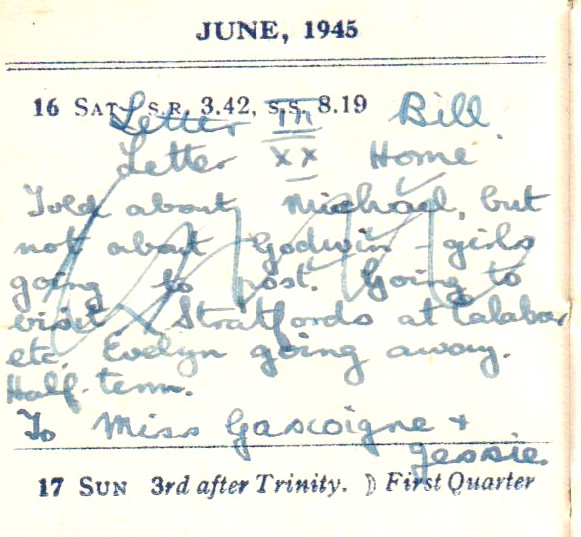 JUNE, 1945
16 SAT S.R. 3.42, S.S. 8.19
Letter III Bill
Letter XX Home
Told about Michael, but
not about Godwin - girls
going to post. Going to
visit Stratfords at Calabar
etc. Evelyn going away.
Half-term.
To Miss Gascoigne +
Jessie.
17 SUN 3rd after Trinity. ☽ First Quarter